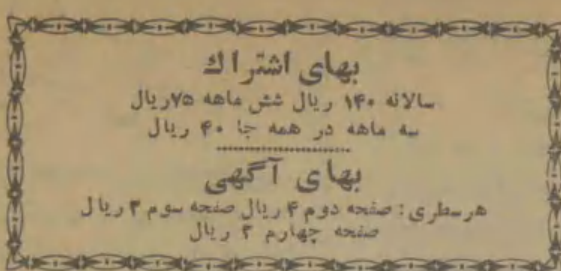 بهای اشتراك
سالانه ۱۴۰ ریال شش ماهه ۷۵ریال
سه ماهه در همه جا ۴۰ ریال
بهای آگهی
هرسطری: صفحه دوم ۴ ریال صفحه سوم ۳ ریال
صفحه چهارم ۲ ریال